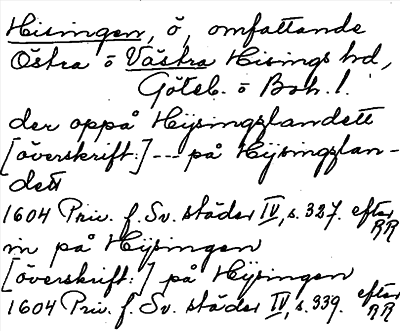 Hisingen, ö, omfattande
Östra o Västra Hisings hd,
Göteb. o Boh. l.
der oppå Hÿsingzlandett
[överskrift:] --- på Hÿsingzlan-
dett
1604 Priv. f. Sv. städer IV, s. 327. efter RR
in på Hÿsingen
[överskrift:] på Hÿsingen
1604 Priv. f. Sv. städer IV, s. 339. efter RR